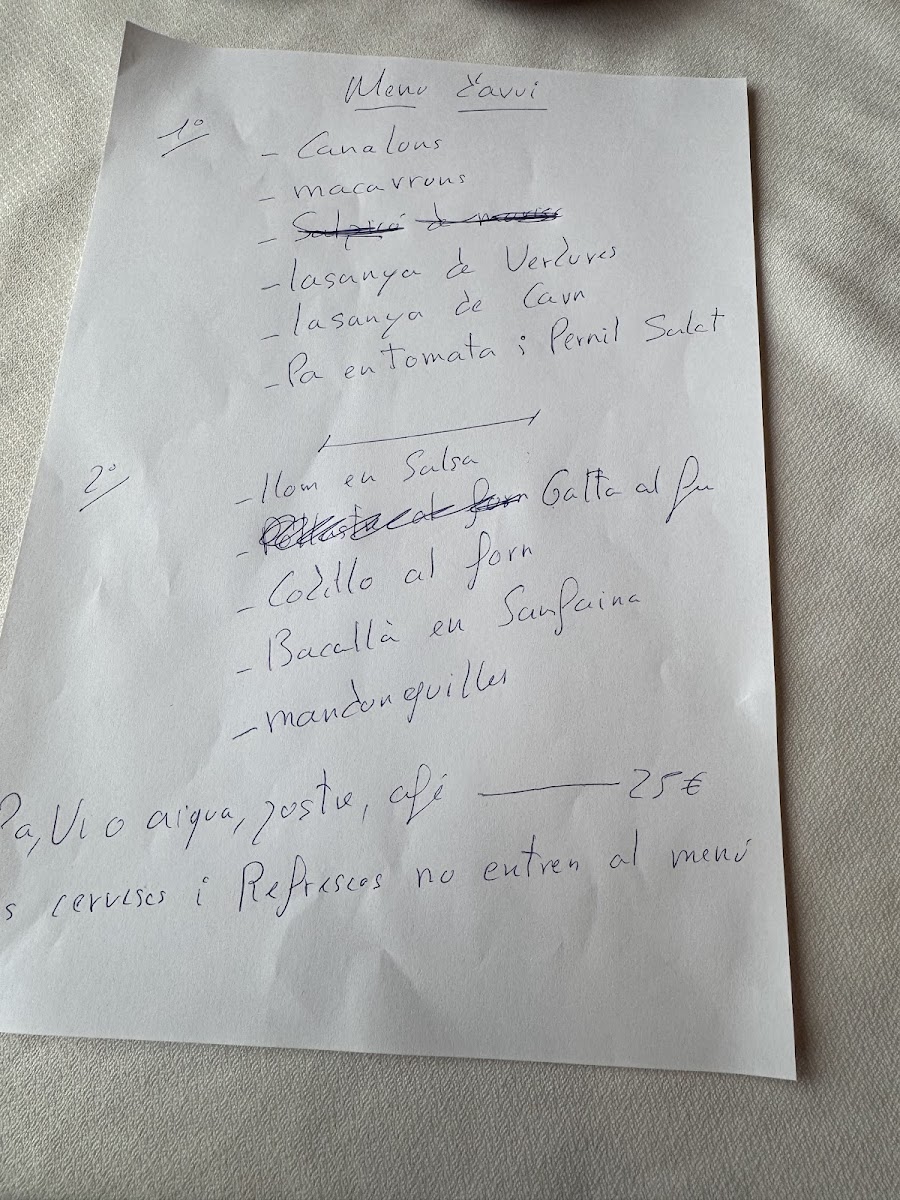 Menu d'avui
1º
- Canalons
- macarrons
- Salpicó de marisc
- lasanya de Verdures
- lasanya de Carn
- Pa en Tomata i Pernil Salat
2º
- llom en Salsa
- Pollastre al forn Galta al fn
- Codillo al forn
- Bacallà en Sanfaina
- mandonguilles
Pa, Vi o aigua, postre, café — 25€
s cerveses i Refrescos no entren al menú